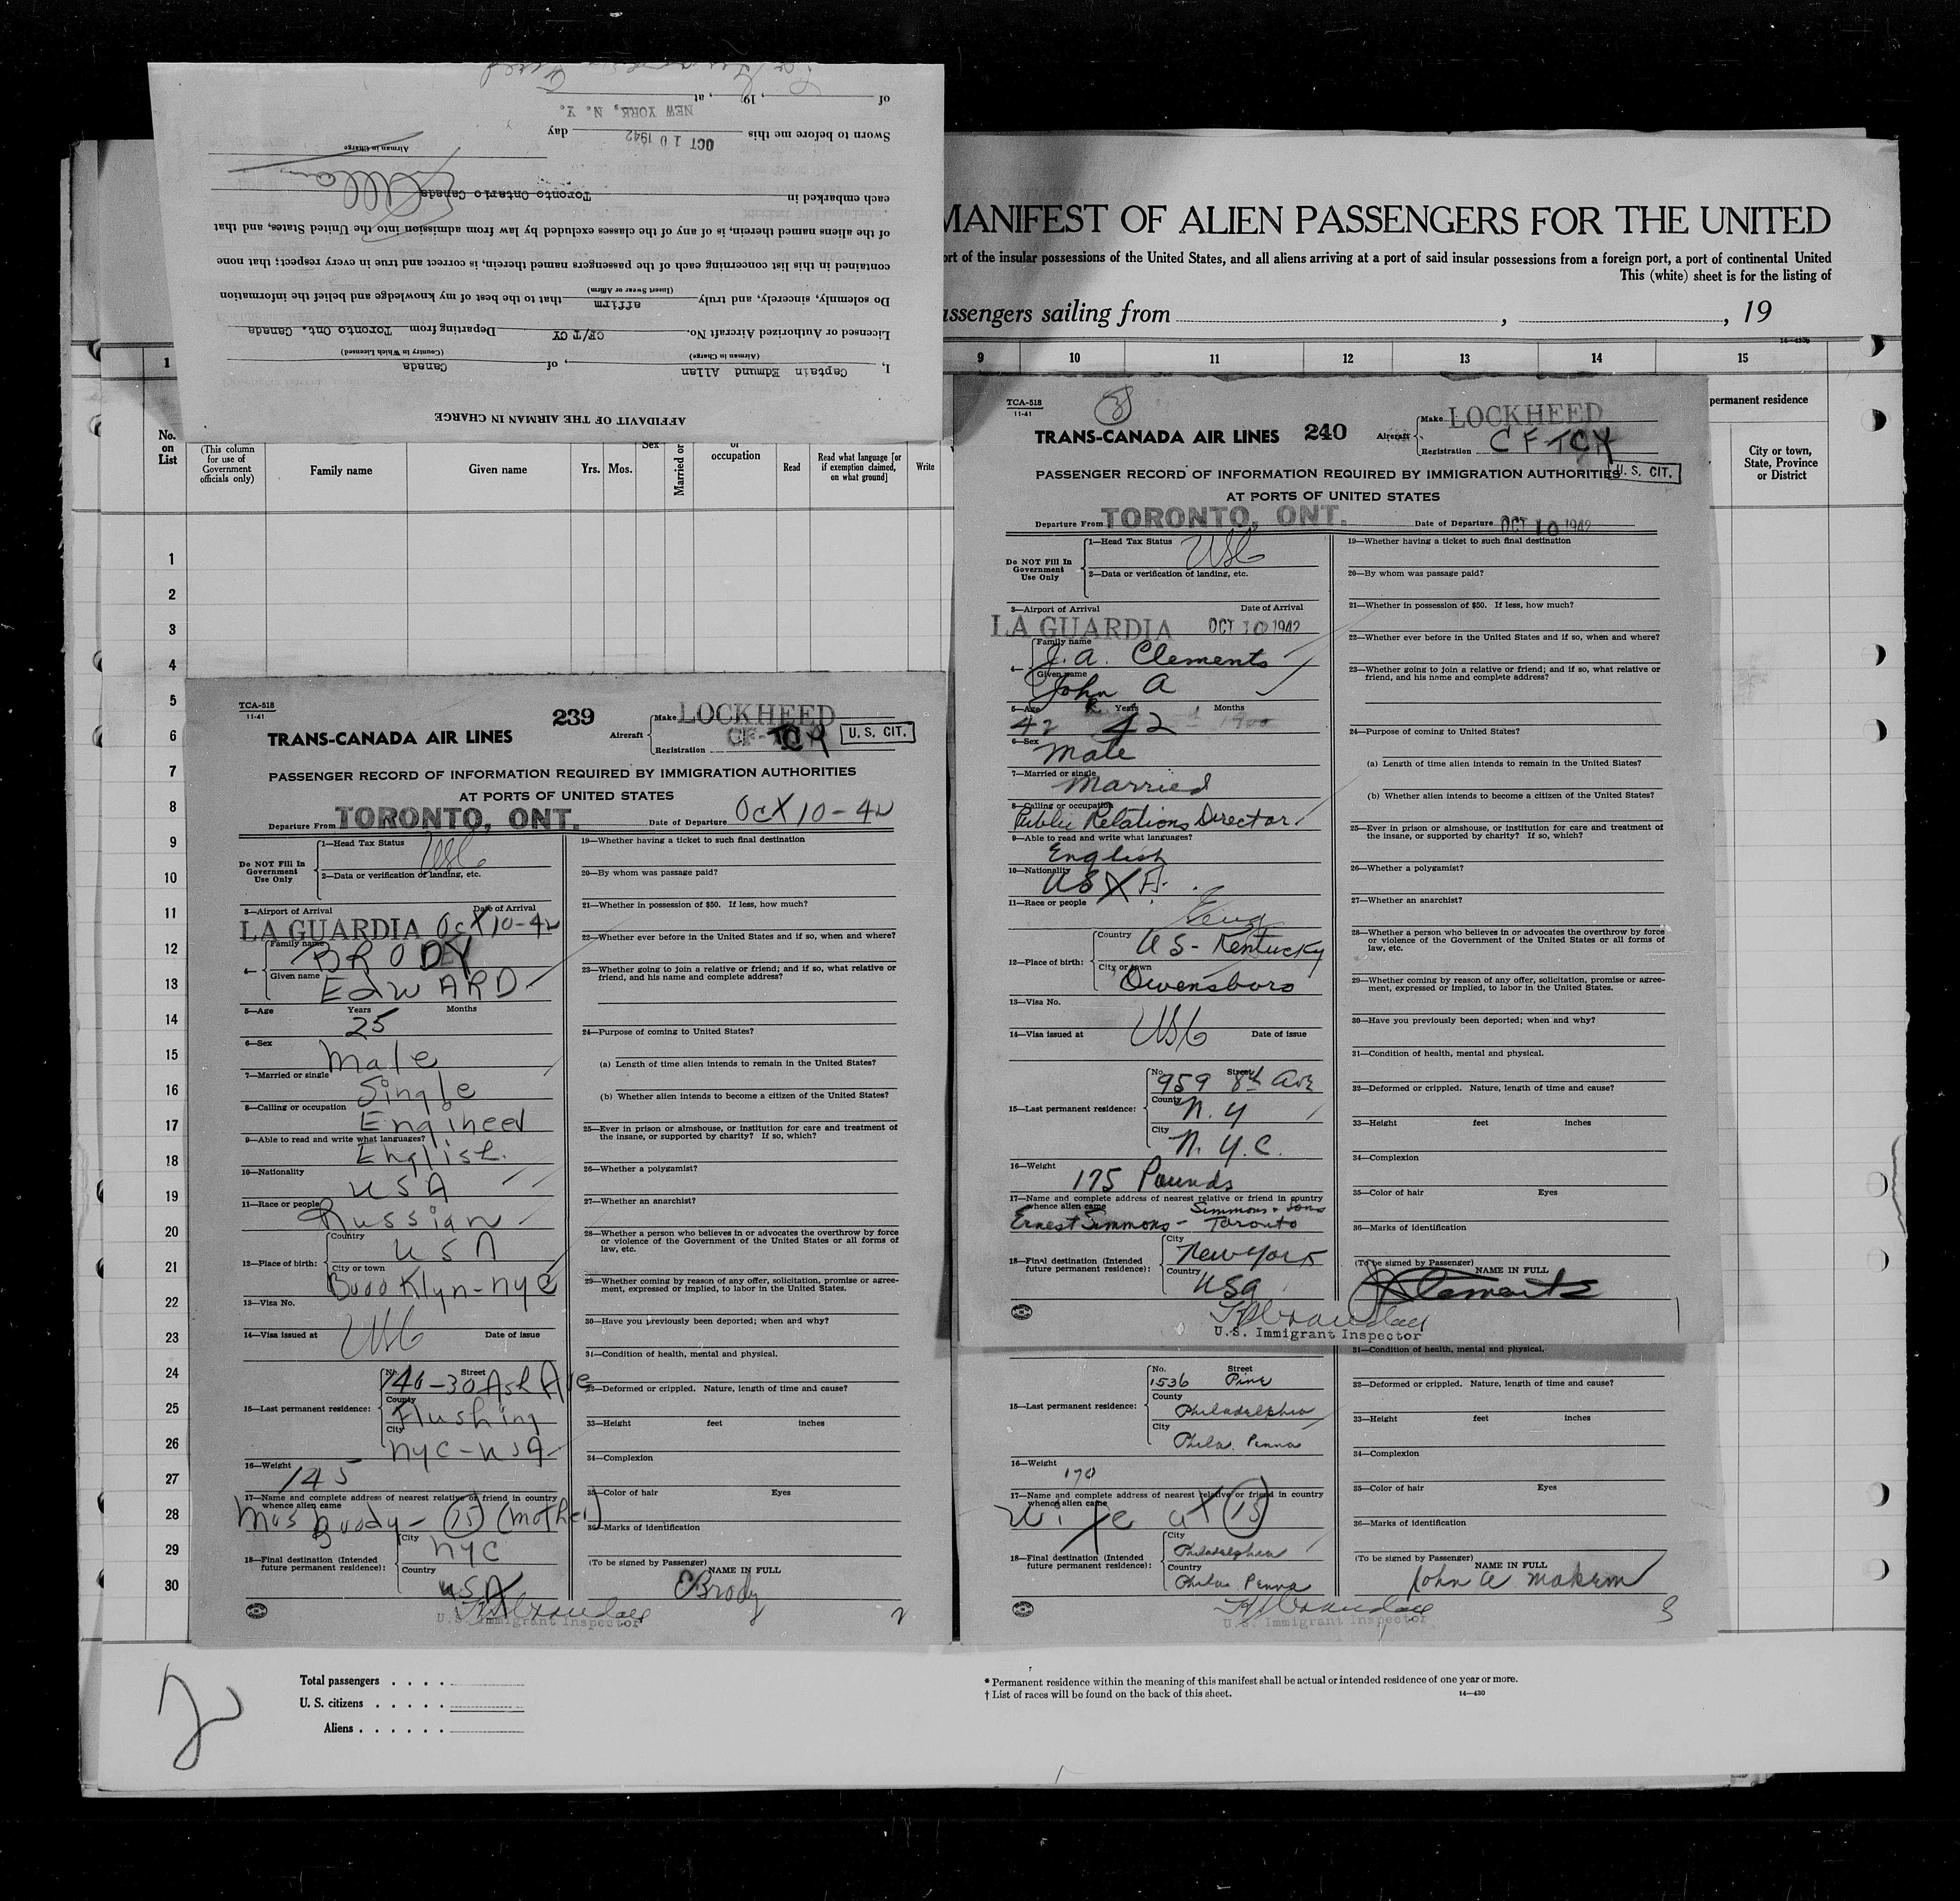 AFFIDAVIT OF THE AIRMAN IN CHARGE
I, Captain Edmund Allan, of Canada
(Airman in Charge) (Country in Which Licensed)
Licensed or Authorized Aircraft No. CF/T CY Departing from Toronto Ont. Canada
Do solemnly, sincerely, and truly affirm that to the best of my knowledge and belief the information
(Insert Swear or Affirm)
contained in this list concerning each of the passengers named therein, is correct and true in every respect; that none
of the aliens named therein, is of any of the classes excluded by law from admission into the United States, and that
each embarked in Toronto Ontario Canada
Airman in Charge
Sworn to before me this OCT 10 1942 day
NEW YORK, N. Y.
of , 19 , at
MANIFEST OF ALIEN PASSENGERS FOR THE UNITED
ort of the insular possessions of the United States, and all aliens arriving at a port of said insular possessions from a foreign port, a port of continental United
This (white) sheet is for the listing of
assengers sailing from , , 19
14-430
1 9 10 11 12 13 14 15
permanent residence
No. on List
(This column for use of Government officials only)
Family name
Given name
Yrs. Mos.
Sex
Married or
or occupation
Read
Read what language [or if exemption claimed, on what ground]
Write
City or town, State, Province or District
1
2
3
4
5
6
7
8
9
10
11
12
13
14
15
16
17
18
19
20
21
22
23
24
25
26
27
28
29
30
TCA-518
11-41
239
TRANS-CANADA AIR LINES
Aircraft
Make LOCKHEED
Registration CF-TCY
U. S. CIT.
PASSENGER RECORD OF INFORMATION REQUIRED BY IMMIGRATION AUTHORITIES
AT PORTS OF UNITED STATES
Departure From TORONTO, ONT. Date of Departure Oct 10-42
Do NOT Fill In Government Use Only
1—Head Tax Status USC
2—Data or verification of landing, etc.
3—Airport of Arrival Date of Arrival
LA GUARDIA Oct 10-42
4— Family name BRODY
Given name EdwARD
5—Age Years Months
25
6—Sex Male
7—Married or single Single
8—Calling or occupation Engineer
9—Able to read and write what languages?
English
10—Nationality USA
11—Race or people Russian
12—Place of birth: Country USA
City or town Brooklyn-NYC
13—Visa No.
14—Visa issued at USC Date of issue
15—Last permanent residence: No. Street 140-30 Ash Ave
County Flushing
City NYC-USA
16—Weight 145
17—Name and complete address of nearest relative or friend in country
whence alien came
Mrs Brody - (15) (mother)
18—Final destination (Intended future permanent residence):
City NYC
Country USA
U.S. Immigrant Inspector
19—Whether having a ticket to such final destination
20—By whom was passage paid?
21—Whether in possession of $50. If less, how much?
22—Whether ever before in the United States and if so, when and where?
23—Whether going to join a relative or friend; and if so, what relative or
friend, and his name and complete address?
24—Purpose of coming to United States?
(a) Length of time alien intends to remain in the United States?
(b) Whether alien intends to become a citizen of the United States?
25—Ever in prison or almshouse, or institution for care and treatment of
the insane, or supported by charity? If so, which?
26—Whether a polygamist?
27—Whether an anarchist?
28—Whether a person who believes in or advocates the overthrow by force
or violence of the Government of the United States or all forms of
law, etc.
29—Whether coming by reason of any offer, solicitation, promise or agree-
ment, expressed or implied, to labor in the United States.
30—Have you previously been deported; when and why?
31—Condition of health, mental and physical.
32—Deformed or crippled. Nature, length of time and cause?
33—Height feet inches
34—Complexion
35—Color of hair Eyes
36—Marks of identification
(To be signed by Passenger)
NAME IN FULL
EBrody
2
TCA-518
11-41
3
TRANS-CANADA AIR LINES 240
Aircraft
Make LOCKHEED
Registration CF TCY
U. S. CIT.
PASSENGER RECORD OF INFORMATION REQUIRED BY IMMIGRATION AUTHORITIES
AT PORTS OF UNITED STATES
Departure From TORONTO, ONT. Date of Departure OCT 10 1942
Do NOT Fill In Government Use Only
1—Head Tax Status USC
2—Data or verification of landing, etc.
3—Airport of Arrival Date of Arrival
LA GUARDIA OCT 10 1942
4— Family name J. A. Clements
Given name John A
5—Age Years Months
42 42 1900
6—Sex Male
7—Married or single Married
8—Calling or occupation
Public Relations Director
9—Able to read and write what languages?
English
10—Nationality USA.
11—Race or people Eng
12—Place of birth: Country US - Kentucky
City or town Owensboro
13—Visa No.
14—Visa issued at USC Date of issue
15—Last permanent residence: No. Street 959 8th Ave
County N.Y
City N.Y.C.
16—Weight 175 Pounds
17—Name and complete address of nearest relative or friend in country
whence alien came Simmons & Sons
Ernest Simmons - Toronto
18—Final destination (Intended future permanent residence):
City New York
Country USA
U.S. Immigrant Inspector
19—Whether having a ticket to such final destination
20—By whom was passage paid?
21—Whether in possession of $50. If less, how much?
22—Whether ever before in the United States and if so, when and where?
23—Whether going to join a relative or friend; and if so, what relative or
friend, and his name and complete address?
24—Purpose of coming to United States?
(a) Length of time alien intends to remain in the United States?
(b) Whether alien intends to become a citizen of the United States?
25—Ever in prison or almshouse, or institution for care and treatment of
the insane, or supported by charity? If so, which?
26—Whether a polygamist?
27—Whether an anarchist?
28—Whether a person who believes in or advocates the overthrow by force
or violence of the Government of the United States or all forms of
law, etc.
29—Whether coming by reason of any offer, solicitation, promise or agree-
ment, expressed or implied, to labor in the United States.
30—Have you previously been deported; when and why?
31—Condition of health, mental and physical.
32—Deformed or crippled. Nature, length of time and cause?
33—Height feet inches
34—Complexion
35—Color of hair Eyes
36—Marks of identification
(To be signed by Passenger)
NAME IN FULL
JAClements
1
15—Last permanent residence: No. Street 1536 Pine
County Philadelphia
City Phila. Penna
16—Weight 170
17—Name and complete address of nearest relative or friend in country
whence alien came
Wife at (15)
18—Final destination (Intended future permanent residence):
City Philadelphia
Country Phila. Penna
U.S. Immigrant Inspector
31—Condition of health, mental and physical.
32—Deformed or crippled. Nature, length of time and cause?
33—Height feet inches
34—Complexion
35—Color of hair Eyes
36—Marks of identification
(To be signed by Passenger)
NAME IN FULL
John W Makem
3
Total passengers . . . .
U. S. citizens . . . . .
Aliens . . . . . .
* Permanent residence within the meaning of this manifest shall be actual or intended residence of one year or more.
† List of races will be found on the back of this sheet.
14—430